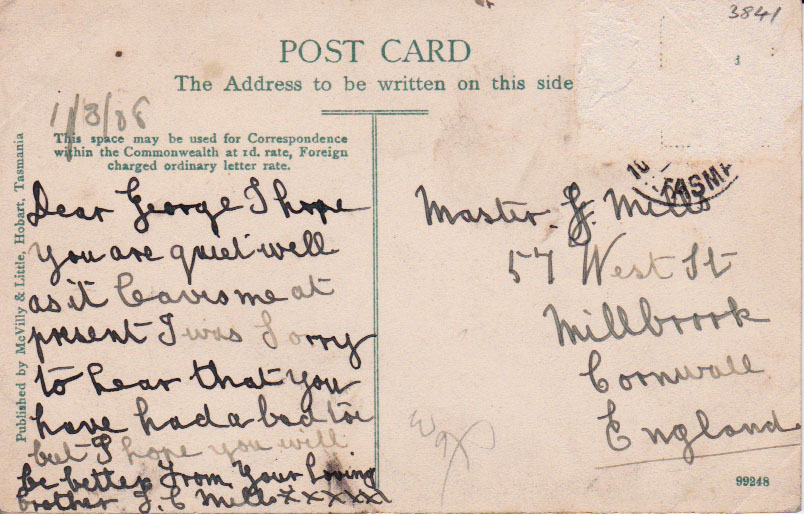 3841
POST CARD
The Address to be written on this side
1/3/06
This space may be used for Correspondence
within the Commonwealth at 1d. rate, Foreign
charged ordinary letter rate.
Published by McVilly & Little, Hobart, Tasmania
Dear George I hope
you are quiet well
as it leaves me at
present I was sorry
to hear that you
have had a bad toe
but I hope you will
be better From Your loving
brother J. C Mills x x x x x x
TASMA
Master. G. Mills
57 West St
Millbrook
Cornwall
England
99248